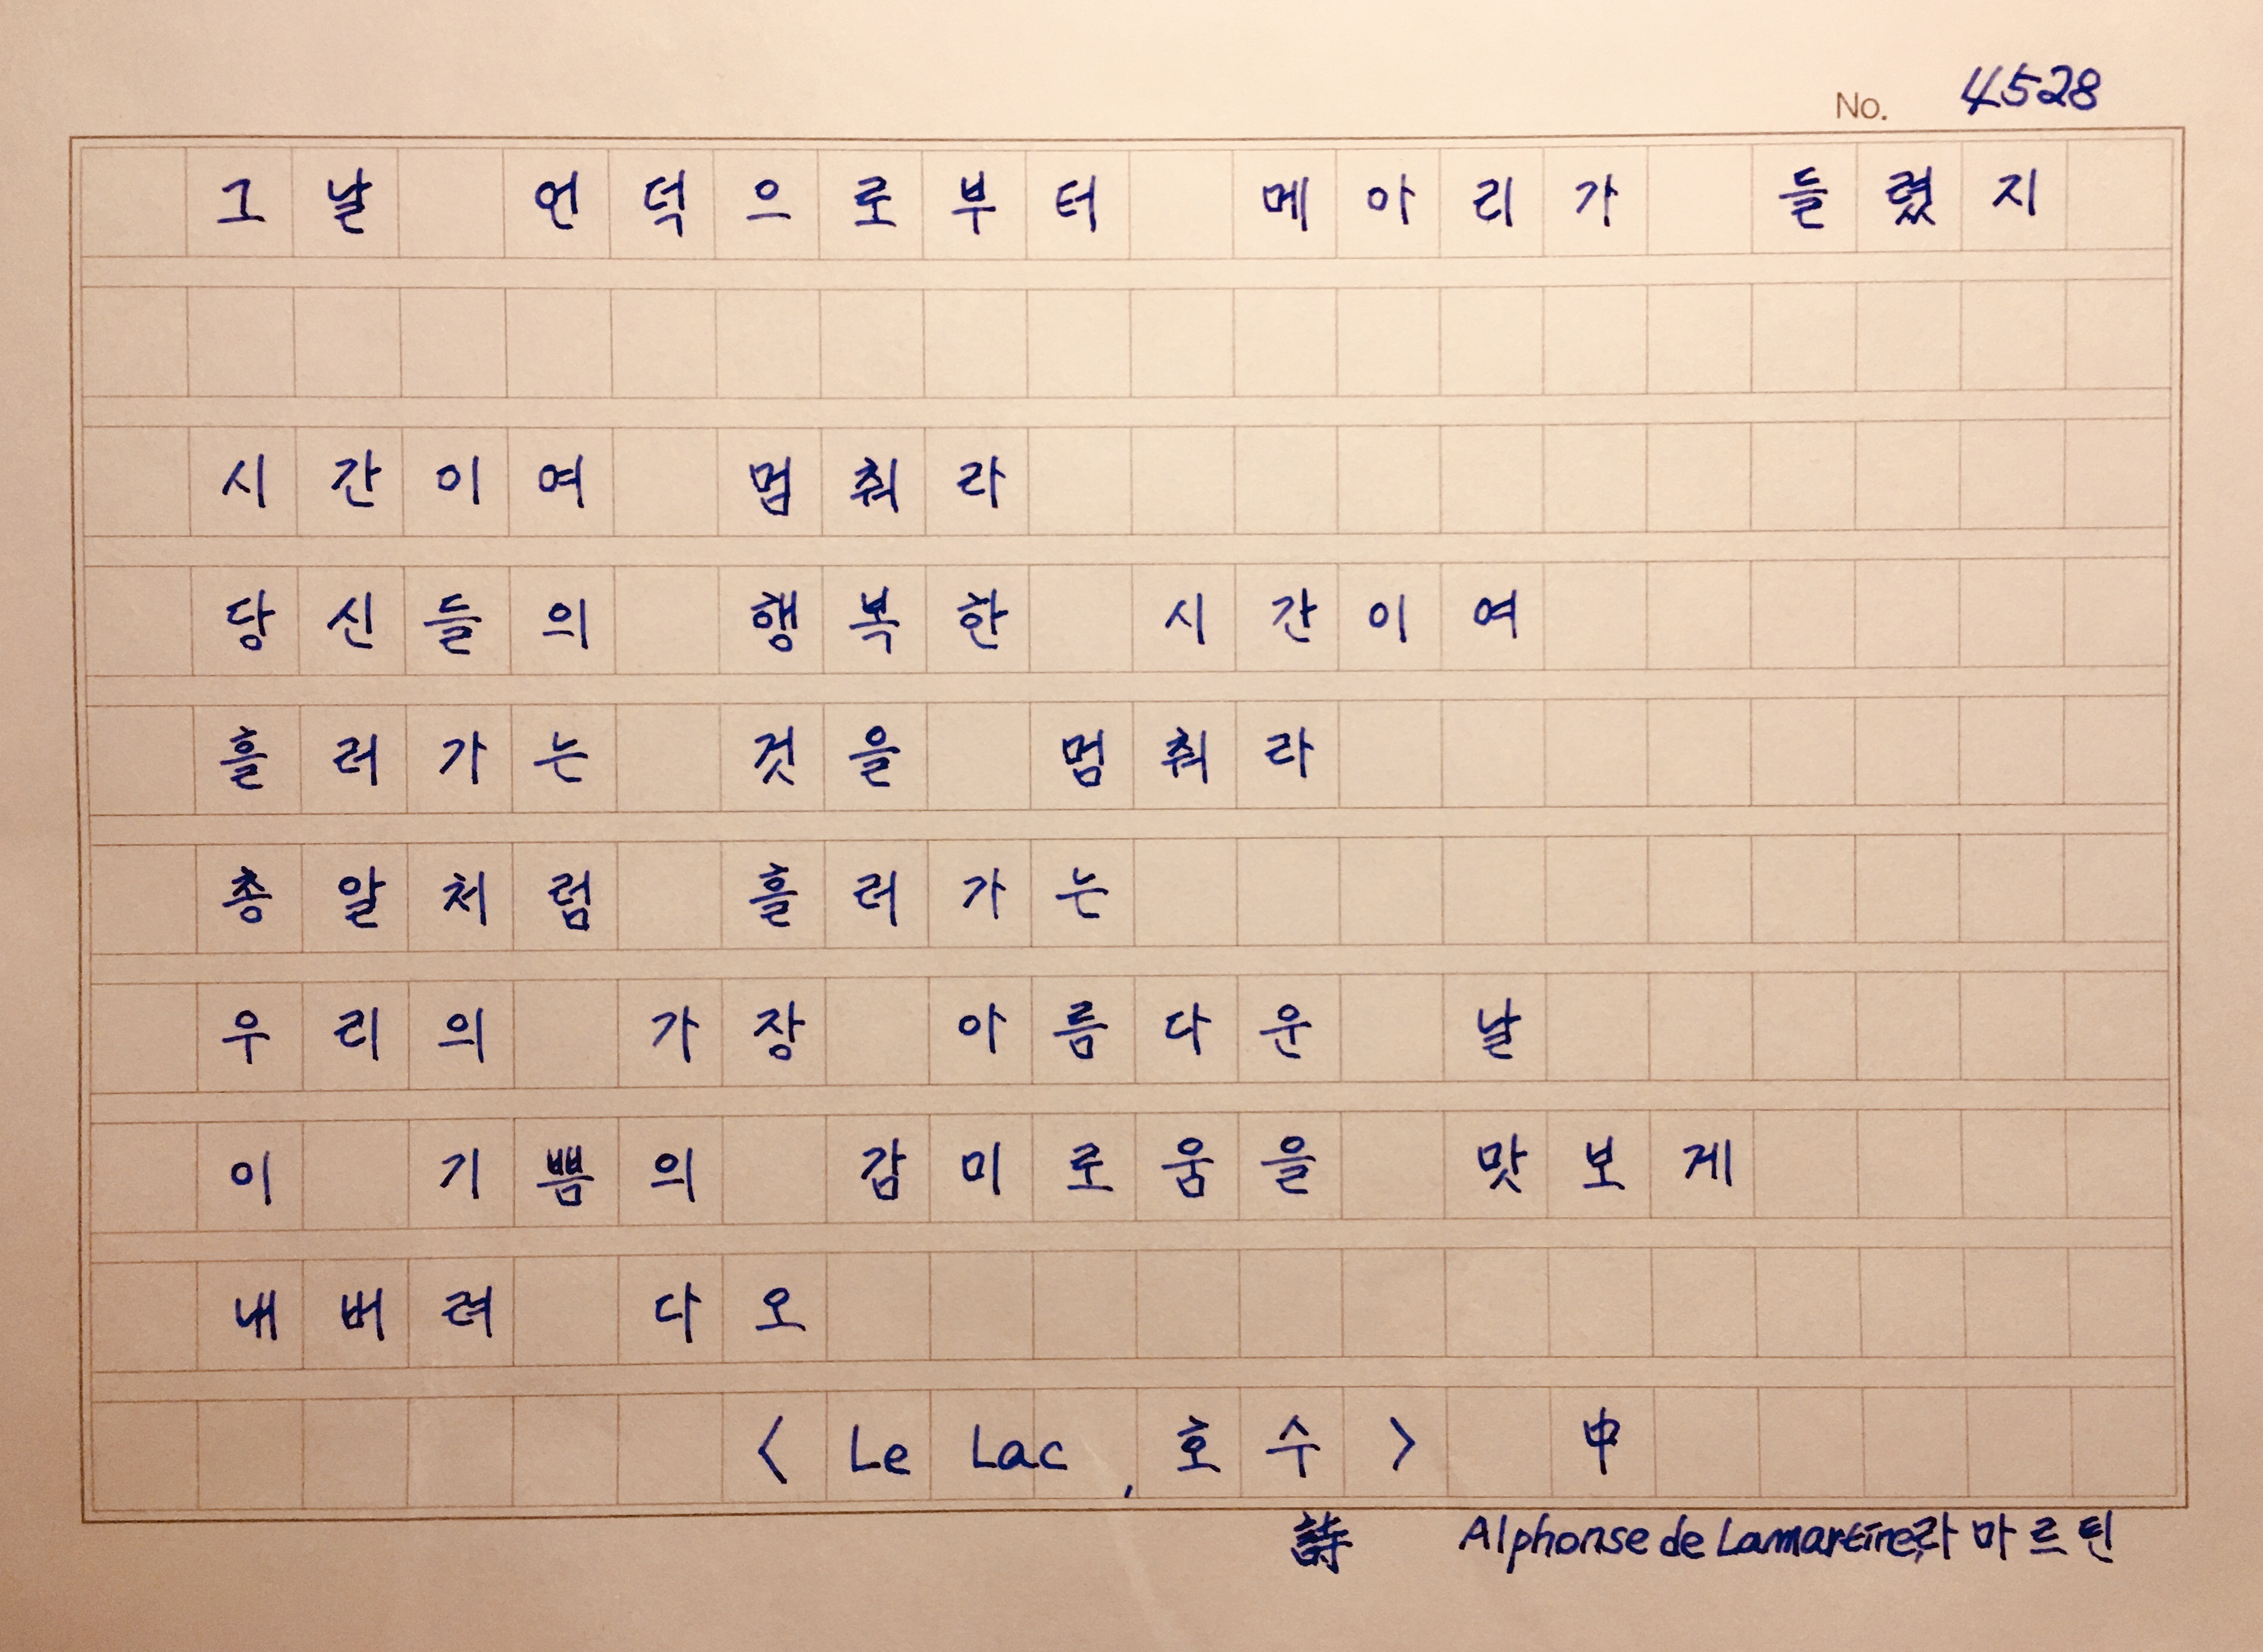 No. 4528
그날 언덕으로부터 메아리가 들렸지
시간이여 멈춰라
당신들의 행복한 시간이여
흘러가는 것을 멈춰라
총알처럼 흘러가는
우리의 가장 아름다운 날
이 기쁨의 감미로움을 맛보게
내버려 다오
< Le Lac, 호수 > 中
詩 Alphonse de Lamartine, 라마르틴